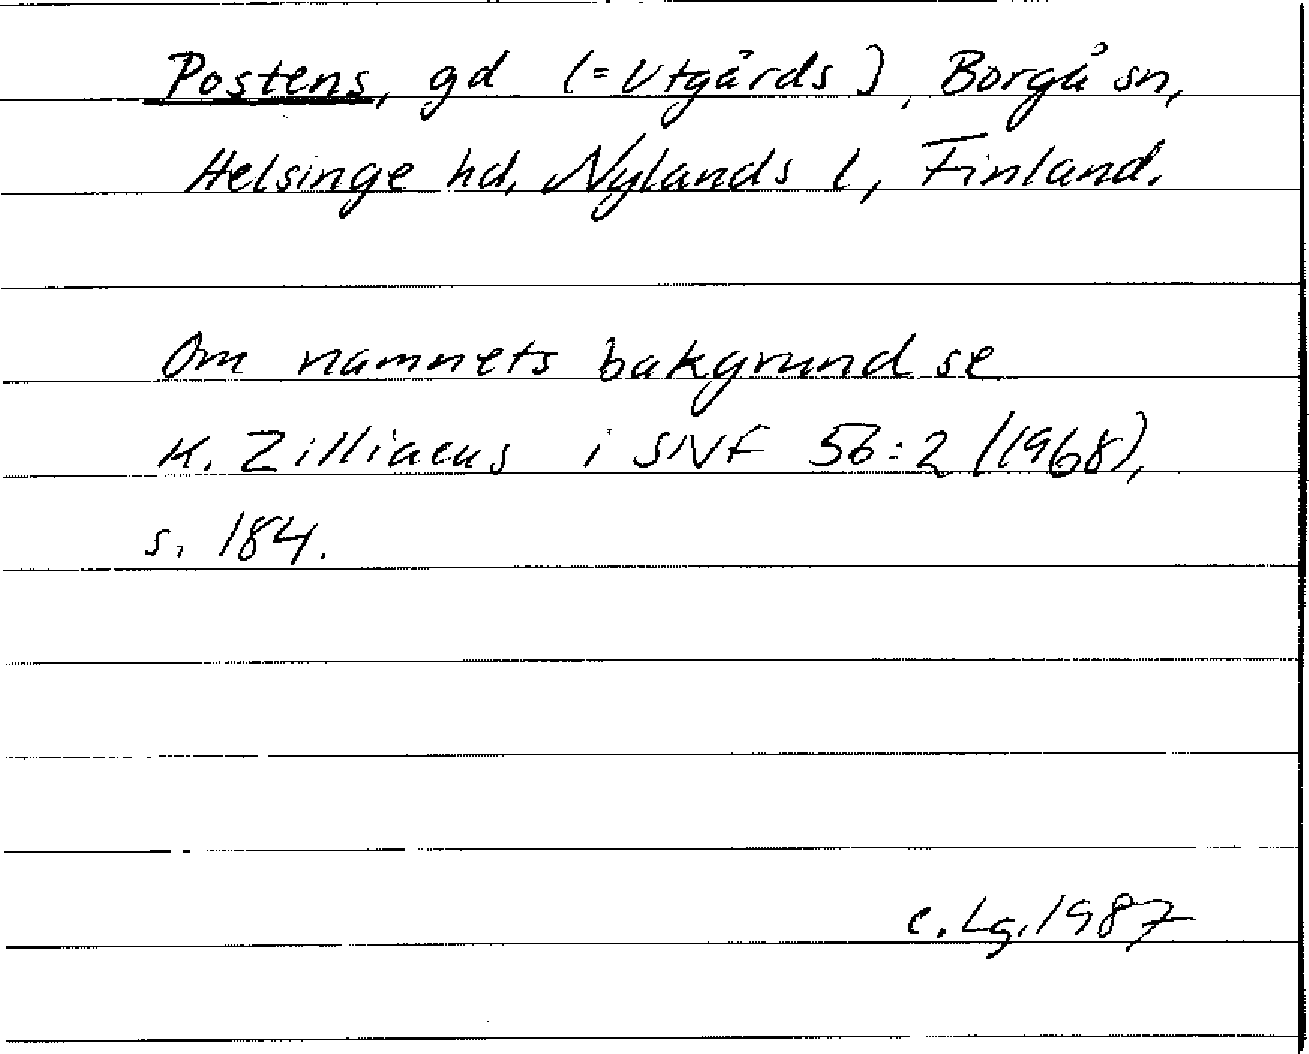 Postens, gd (= Utgårds), Borgå sn,
Helsinge hd, Nylands l, Finland.
Om namnets bakgrund se
K. Zilliacus i SNF 56:2 (1968),
s. 184.
C. Lg. 1987